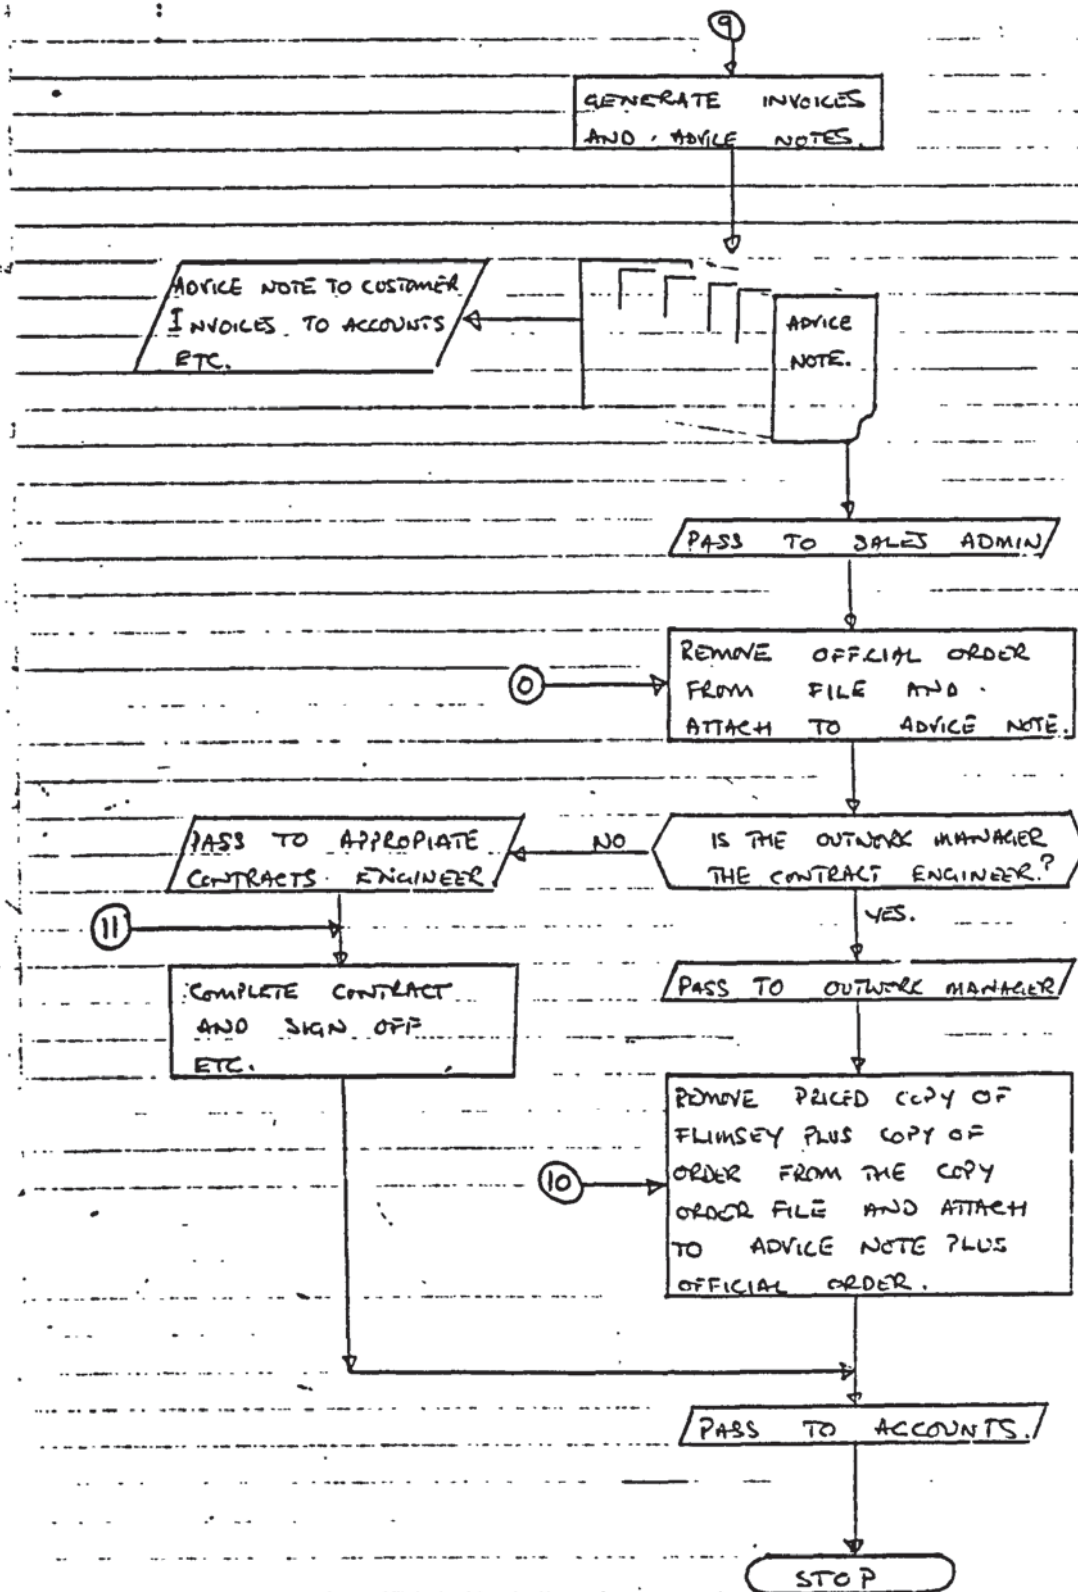 9
GENERATE INVOICES
AND ADVICE NOTES.
ADVICE NOTE TO CUSTOMER
INVOICES TO ACCOUNTS
ETC.
ADVICE
NOTE.
PASS TO SALES ADMIN
REMOVE OFFICIAL ORDER
FROM FILE AND
ATTACH TO ADVICE NOTE.
0
IS THE OUTWORK MANAGER
THE CONTRACT ENGINEER?
NO
PASS TO APPROPIATE
CONTRACTS ENGINEER
YES.
11
COMPLETE CONTRACT
AND SIGN OFF
ETC.
PASS TO OUTWORK MANAGER
REMOVE PRICED COPY OF
FLIMSEY PLUS COPY OF
ORDER FROM THE COPY
ORDER FILE AND ATTACH
TO ADVICE NOTE PLUS
OFFICIAL ORDER.
10
PASS TO ACCOUNTS.
STOP